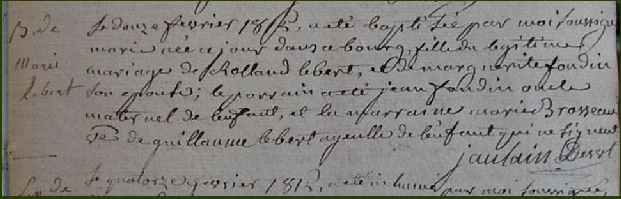 B. de
Marie
Lebert
Le douze fevrier 1812, a été baptisée par moi soussigné
marie née ce jour dans ce bourg, fille du legitime
mariage de Rolland lebert, et de marguerite fondin
son epouse; le parrain a été jean fondin oncle
maternel de l'enfant, et la marraine marie Brosseau
ve de guillaume lebert ayeulle de l'enfant qui ne signent
jaulain Desst
de
Le quatorze fevrier 1812, a été inhumé par moi soussigné,